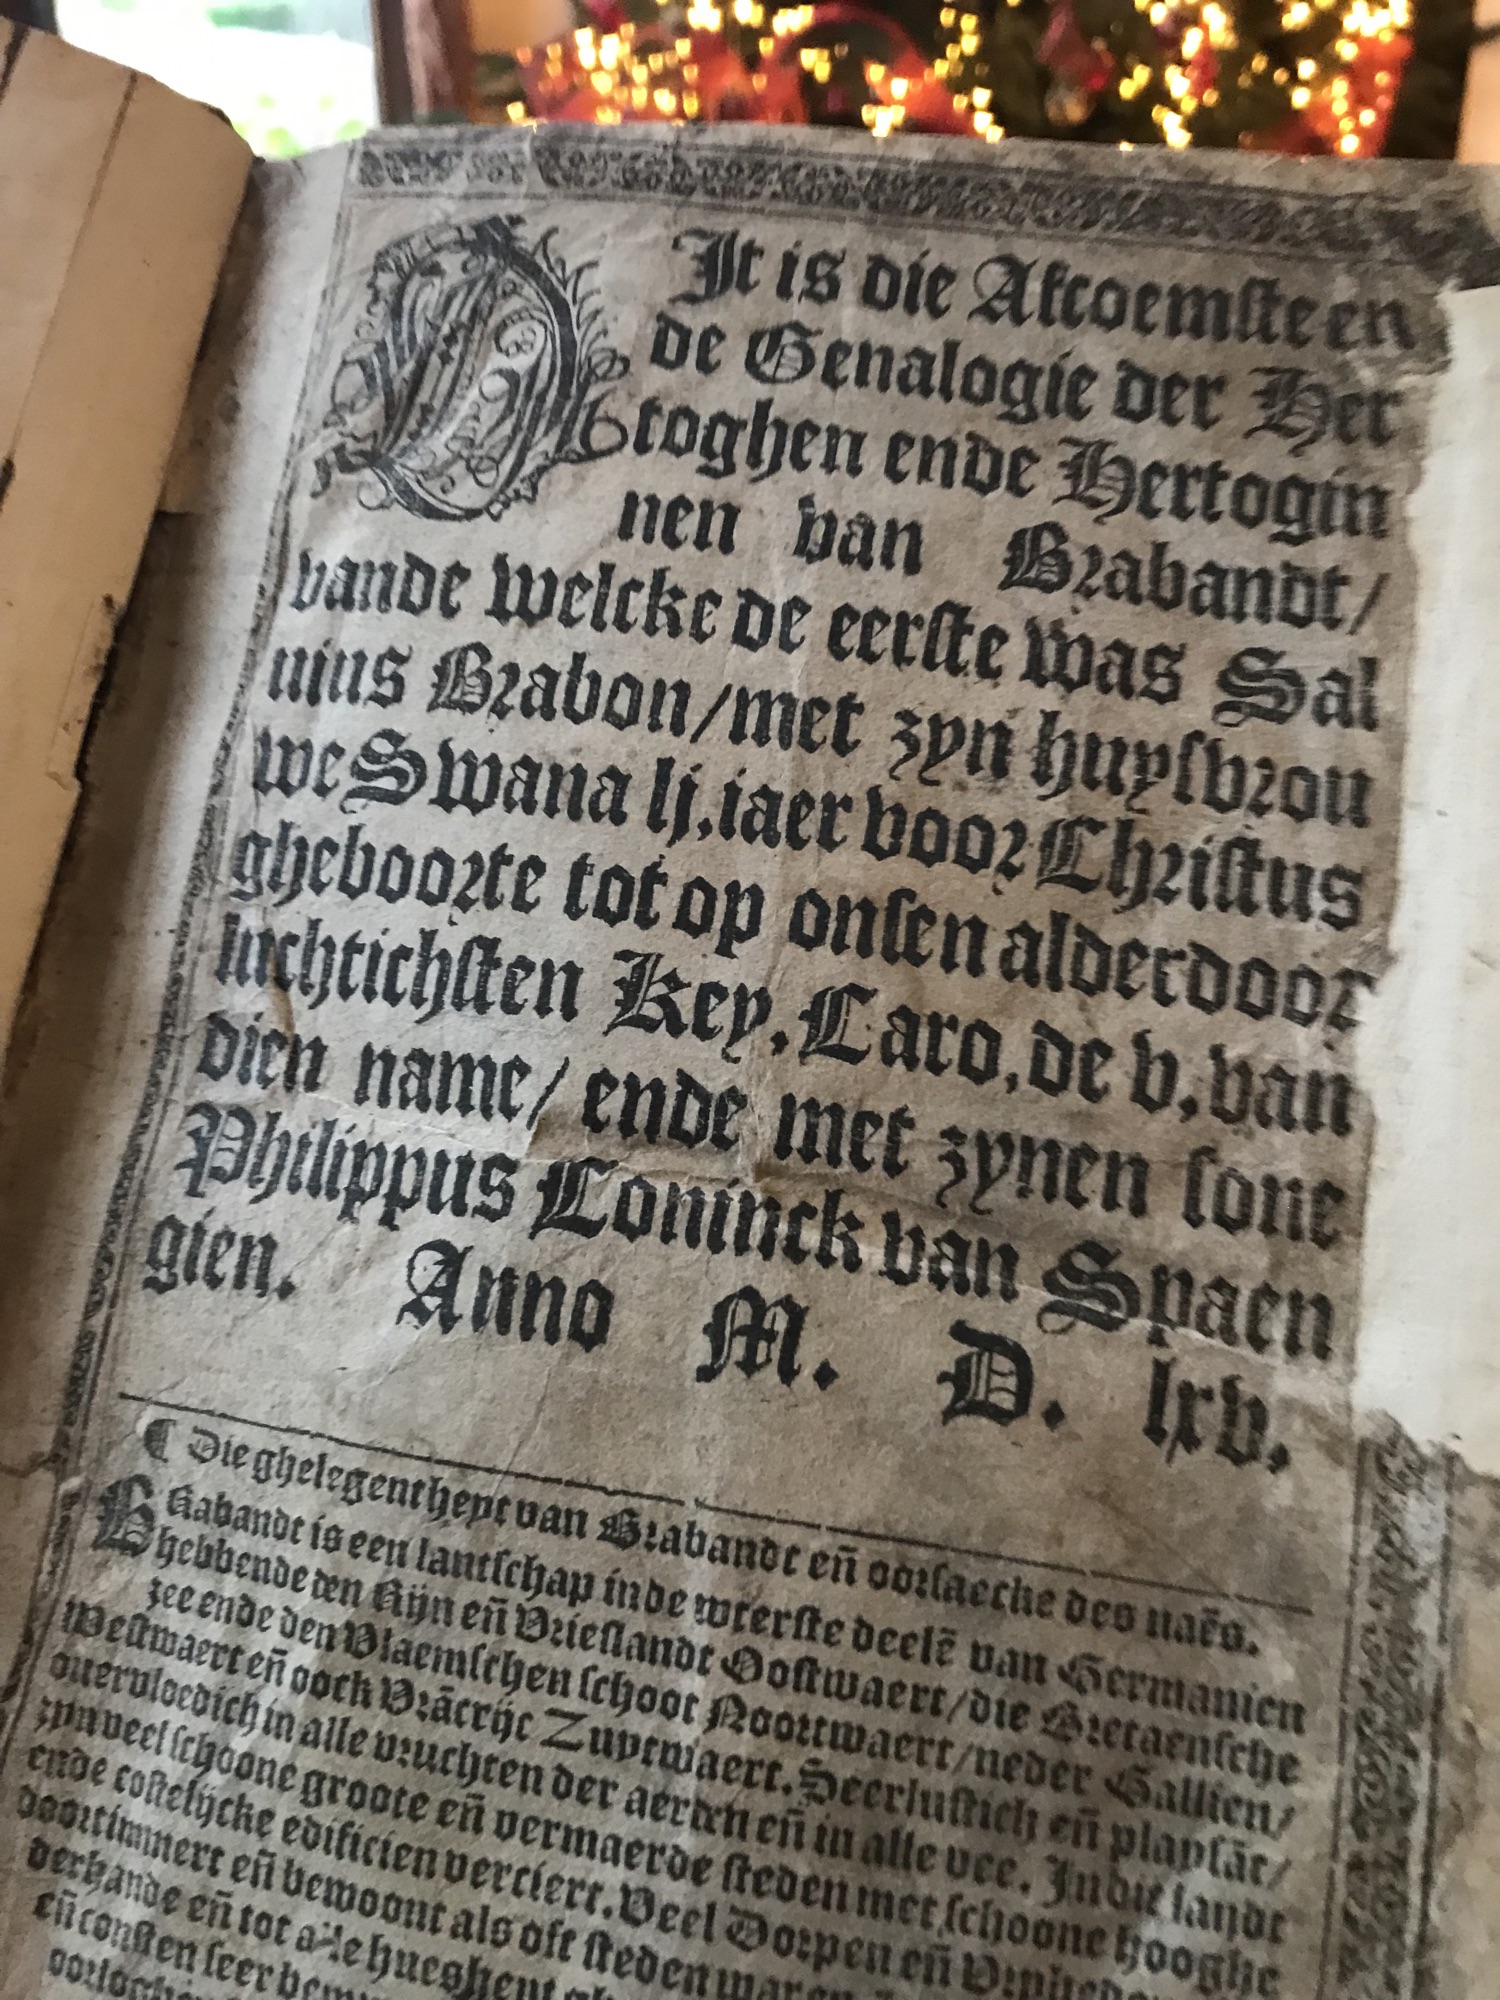 DIt is die Afcoemste en
de Genalogie der Her
toghen ende Hertogin
nen van Brabandt/
vande welcke de eerste was Sal
uius Brabon/met zyn huysvrou
we Swana lj.iaer voor Christus
gheboorte tot op onsen alderdoor
luchtichsten Key. Caro. de v. van
dien name/ ende met zynen sone
Philippus Coninck van Spaen
gien. Anno M. D. lxv.
¶ Die ghelegentheyt van Brabandt eñ oorsaecke des naẽs.
BRabandt is een lantschap inde wterste deelẽ van Germanien
hebbende den Rijn eñ Vrieslandt Oostwaert/die Bretaensche
zee ende den Vlaemschen schoot Noortwaert/neder Gallien/
Westwaert eñ oock Vrãcrijc Zuytwaert. Seer lustich eñ playsãt/
ouervloedich in alle vruchten der aerden eñ in alle vee. In dit landt
zyn veel schoone groote eñ vermaerde steden met schoone hooghe
ende costelijcke edificien verciert. Veel Dorpen eñ
doortimmert eñ bewoont als oft steden waren
derhande eñ tot alle
eñ consten seer